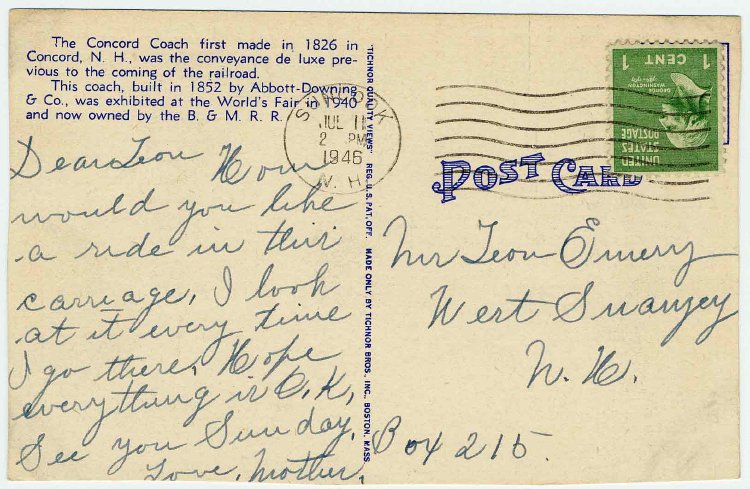 The Concord Coach first made in 1826 in
Concord, N. H., was the conveyance de luxe pre-
vious to the coming of the railroad.
This coach, built in 1852 by Abbott-Downing
& Co., was exhibited at the World's Fair in 1940
and now owned by the B. & M. R. R.
Dear Leon How
would you like
a ride in this
carriage, I look
at it every time
I go there, Hope
everything is O.K,
See you Sunday,
Love, Mother.
"TICHNOR QUALITY VIEWS" REG. U. S. PAT. OFF. MADE ONLY BY TICHNOR BROS. INC., BOSTON, MASS.
JUL 11
2 PM
1946
N. H.
POST CARD
1 CENT 1
GEORGE
WASHINGTON
UNITED
STATES
POSTAGE
Mr Leon Emery
West Swanzey
N. H.
Box 215.